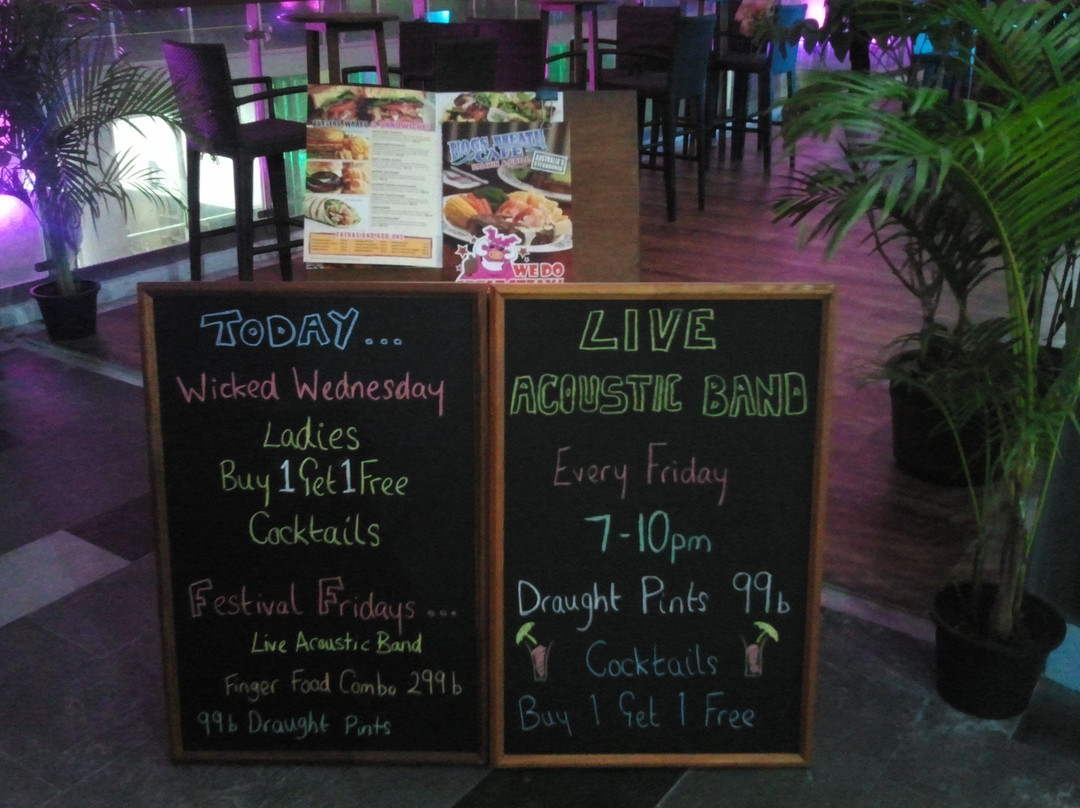 HOGS BREATH
CAFE
AUSTRALIA'S
STEAKHOUSE
WE DO
TODAY...
Wicked Wednesday
Ladies
Buy 1 Get 1 Free
Cocktails
Festival Fridays...
Live Acoustic Band
Finger Food Combo 299b
99b Draught Pints
LIVE
ACOUSTIC BAND
Every Friday
7-10pm
Draught Pints 99b
Cocktails
Buy 1 Get 1 Free